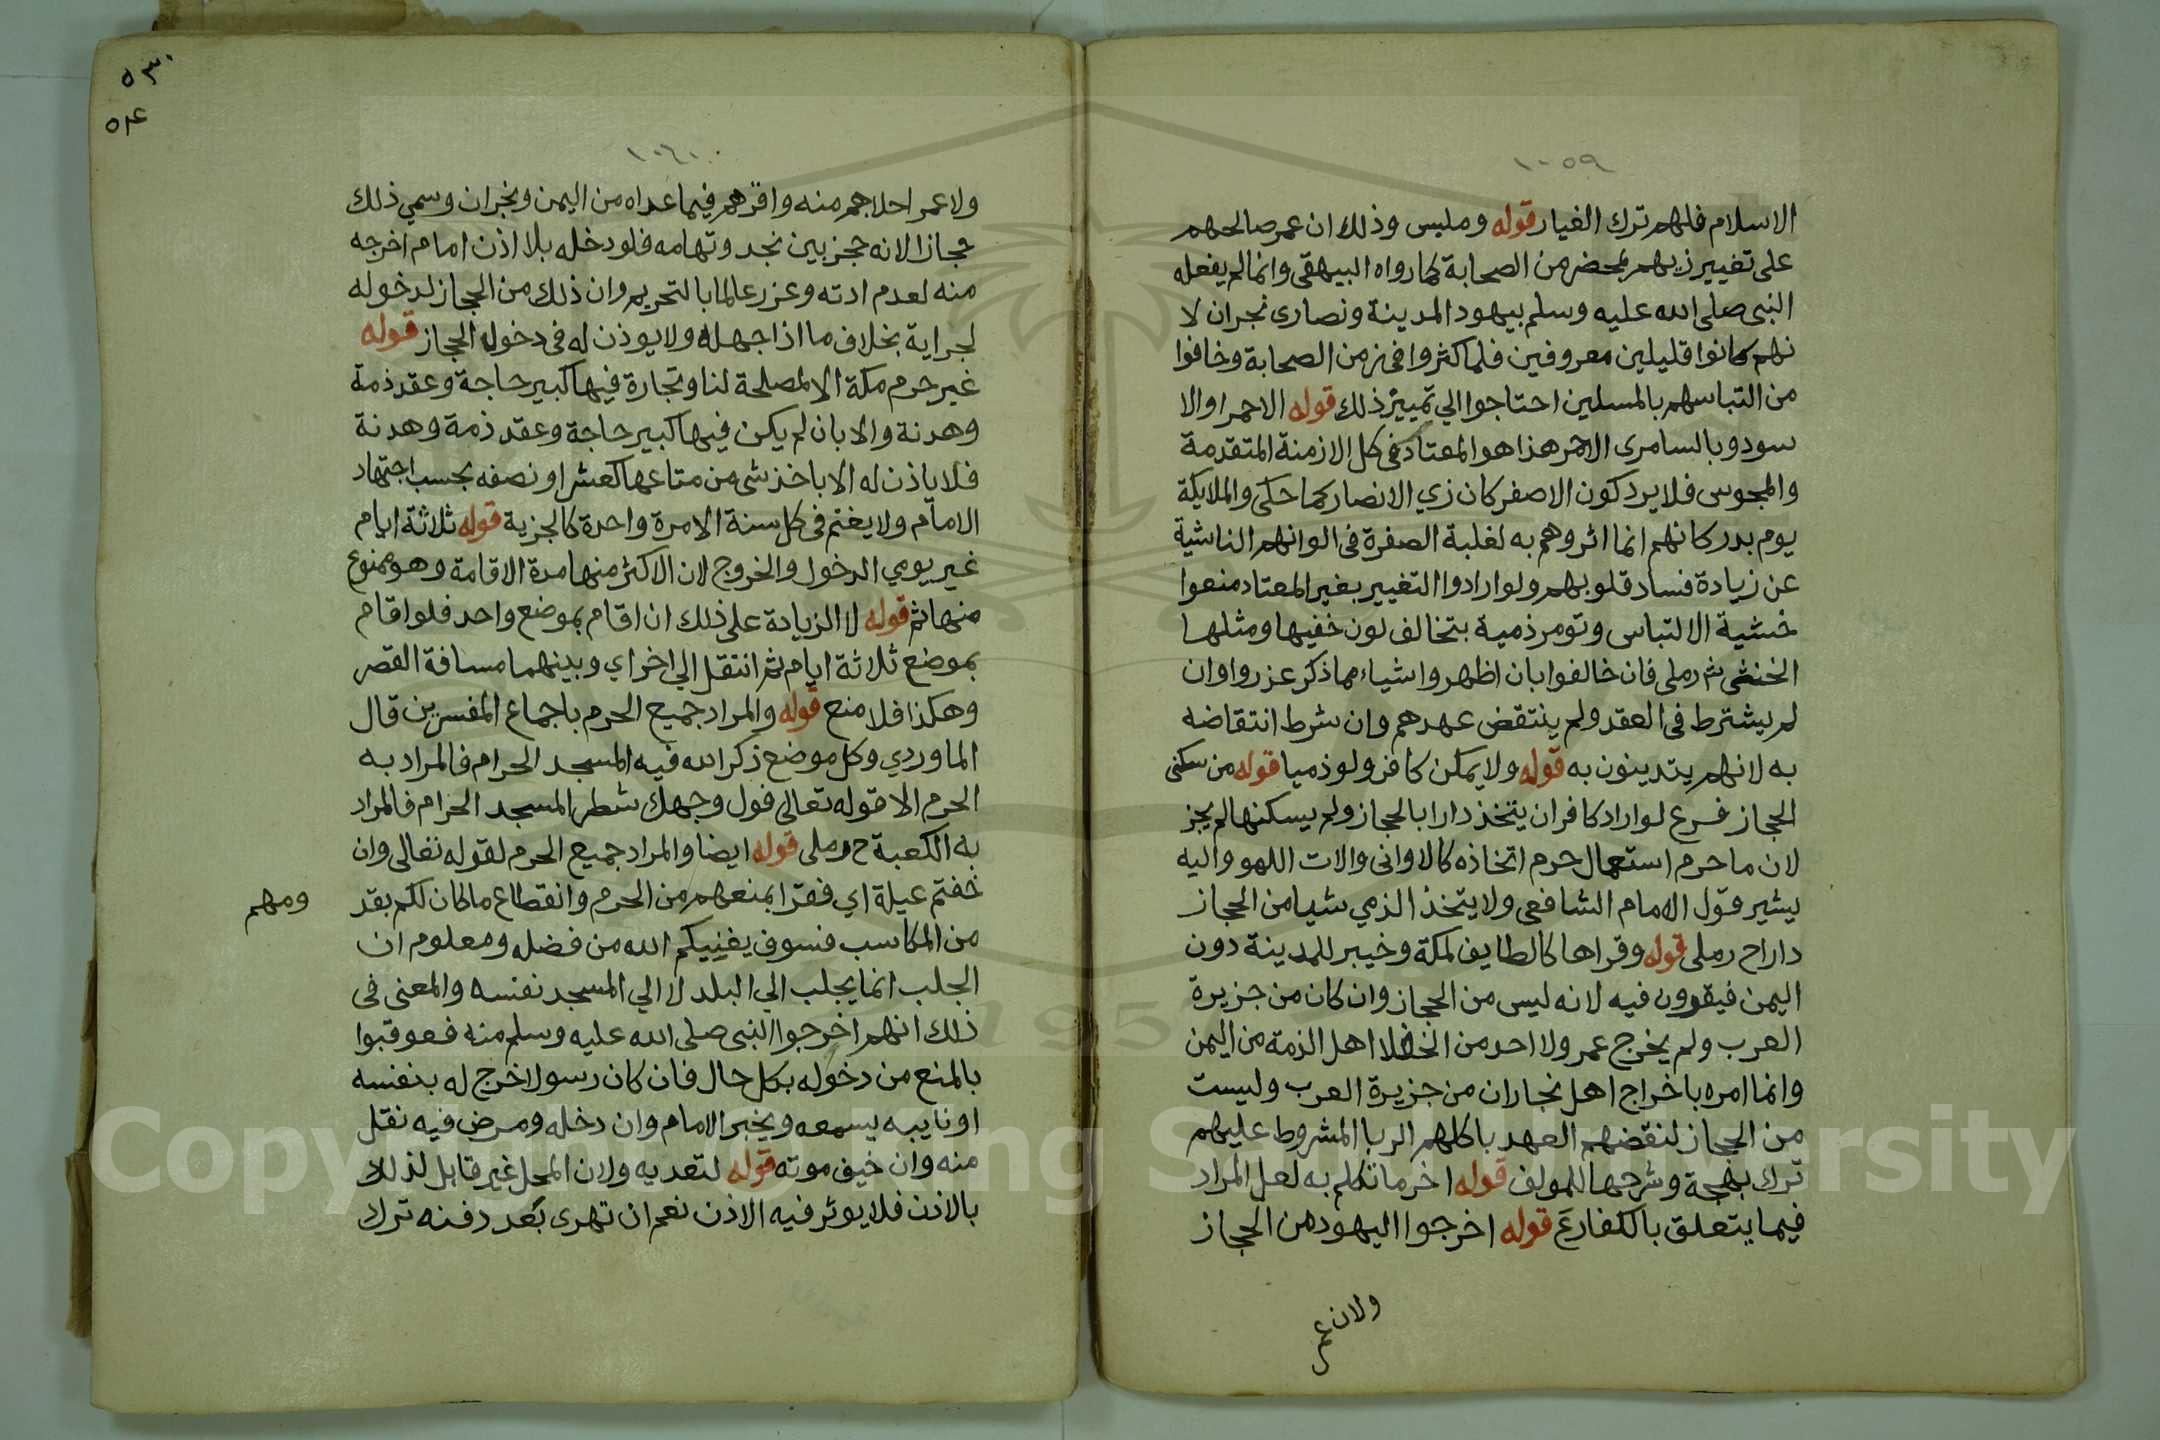 ١٠٥٩
الاسلام فلهم ترك الغيار قوله وملبس وذلك ان عمر صالحهم
على تغيير زيهم بمحضر من الصحابة كما رواه البيهقى وانما لم يفعله
النبى صلى الله عليه وسلم بيهود المدينة ونصارى نجران لا
نهم كانوا قليلين معروفين فلما كثروا فى زمن الصحابة وخافوا
من التباسهم بالمسلمين احتاجوا الي تمييز ذلك قوله الاحمر اوالا
سود وبالسامرى الاحمر هذا هو المعتاد فى كل الازمنة المتقدمة
والمجوس فلا يرد كون الاصفر كان زي الانصار كما حكى والملايكة
يوم بدر كانهم انما اثروهم به لغلبة الصفرة فى الوانهم الناشية
عن زيادة فساد قلوبهم ولو ارادوا التغيير بغير المعتاد منعوا
خشية الالتباس وتومر ذمية بتخالف لون خفيها ومثلها
الخنثى ش رملى فان خالفوا بان اظهروا شياء مما ذكر عزروا وان
لم يشترط فى العقد ولم ينتقض عهدهم وان شرط انتقاضه
به لانهم يتدينون به قوله ولا يمكن كافر ولو ذميا قوله من سكنى
الحجاز فرع لو اراد كافر ان يتخذ دارا بالحجاز ولم يسكنها لم يجز
لان ما حرم استعمال حرم اتخاذه كالاوانى والات اللهو واليه
يشير قول الامام الشافعى ولا يتخذ الذمي شيا من الحجاز
دارا ح رملى قوله وقراها كالطايف لمكة وخيبر للمدينة دون
اليمن فيقرون فيه لانه ليس من الحجاز وان كان من جزيرة
العرب ولم يخرج عمر ولا احد من الخلفا اهل الذمة من اليمن
وانما امره باخراج اهل نجاران من جزيرة العرب وليست
من الحجاز لنقضهم العهد باكلهم الربا المشروط عليهم
ترك بهجة وشرحها للمولف قوله اخر ما تكلم به لعل المراد
فيما يتعلق بالكفار ع قوله اخرجوا اليهود من الحجاز
ولان عمر
٥٣٠
٥٢٤
١٠٦٠
ولا عمر اجلاهم منه واقرهم فيما عداه من اليمن ونجران وسمي ذلك
حجازا لانه حجز بين نجد وتهامه فلو دخله بلا اذن امام اخرجه
منه لعدم اذنه وعزر عالما بالتحريم وان ذلك من الحجاز لدخوله
لجراية بخلاف ما اذا جهله ولا يوذن له فى دخول الحجاز قوله
غير حرم مكة الا لمصلحة لنا وتجارة فيها كبير حاجة وعقد ذمة
وهدنة والا بان لم يكن فيها كبير حاجة وعقد ذمة وهدنة
فلا ياذن له الا باخذ شى من متاعها كعشر او نصفه بحسب اجتهاد
الامام ولا يغنم فى كل سنة الا مرة واحدة كالجزية قوله ثلاثة ايام
غير يومي الدخول والخروج لان الاكثر منها مدة الاقامة وهو ممنوع
منها ثم قوله لا الزيادة على ذلك ان اقام بموضع واحد فلو اقام
بموضع ثلاثة ايام ثم انتقل الي اخر اي وبينهما مسافة القصر
وهكذا فلا منع قوله والمراد جميع الحرم باجماع المفسرين قال
الماوردي وكل موضع ذكر الله فيه المسجد الحرام فالمراد به
الحرم الا قوله تعالى فول وجهك شطر المسجد الحرام فالمراد
به الكعبة ح رملى قوله ايضا والمراد جميع الحرم لقوله تعالى وان
خفتم عيلة اي فقرا بمنعهم من الحرم وانقطاع ما كان لكم بقد
ومهم
من المكاسب فسوف يغنيكم الله من فضله ومعلوم ان
الجلب انما يجلب الي البلد لا الي المسجد نفسه والمعنى فى
ذلك انهم اخرجوا النبى صلى الله عليه وسلم منه فعوقبوا
بالمنع من دخوله بكل حال فان كان رسولا خرج له بنفسه
او نايبه يسمعه ويخبر الامام وان دخله ومرض فيه نقل
منه وان خيف موته قوله لتعديه ولان المحل غير قابل لذلك
بالاذن فلا يوثر فيه الاذن نعم ان تهرى بعد دفنه ترك
Copyright © King Saud University
1957